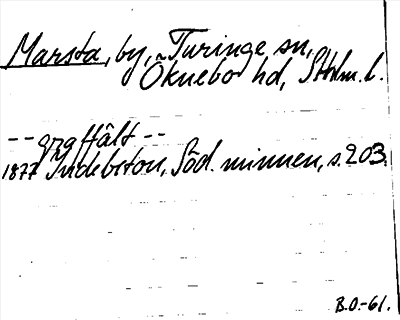 Marsta, by, Turinge sn,
Öknebo hd, Sthlm. l.
-- graffält --
1877 Indebetou, Söd. minnen, s. 203.
B.O.-61.